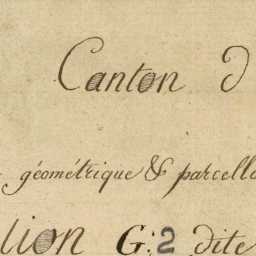 Canton d
géométrique & parcella
lion G: 2 dite